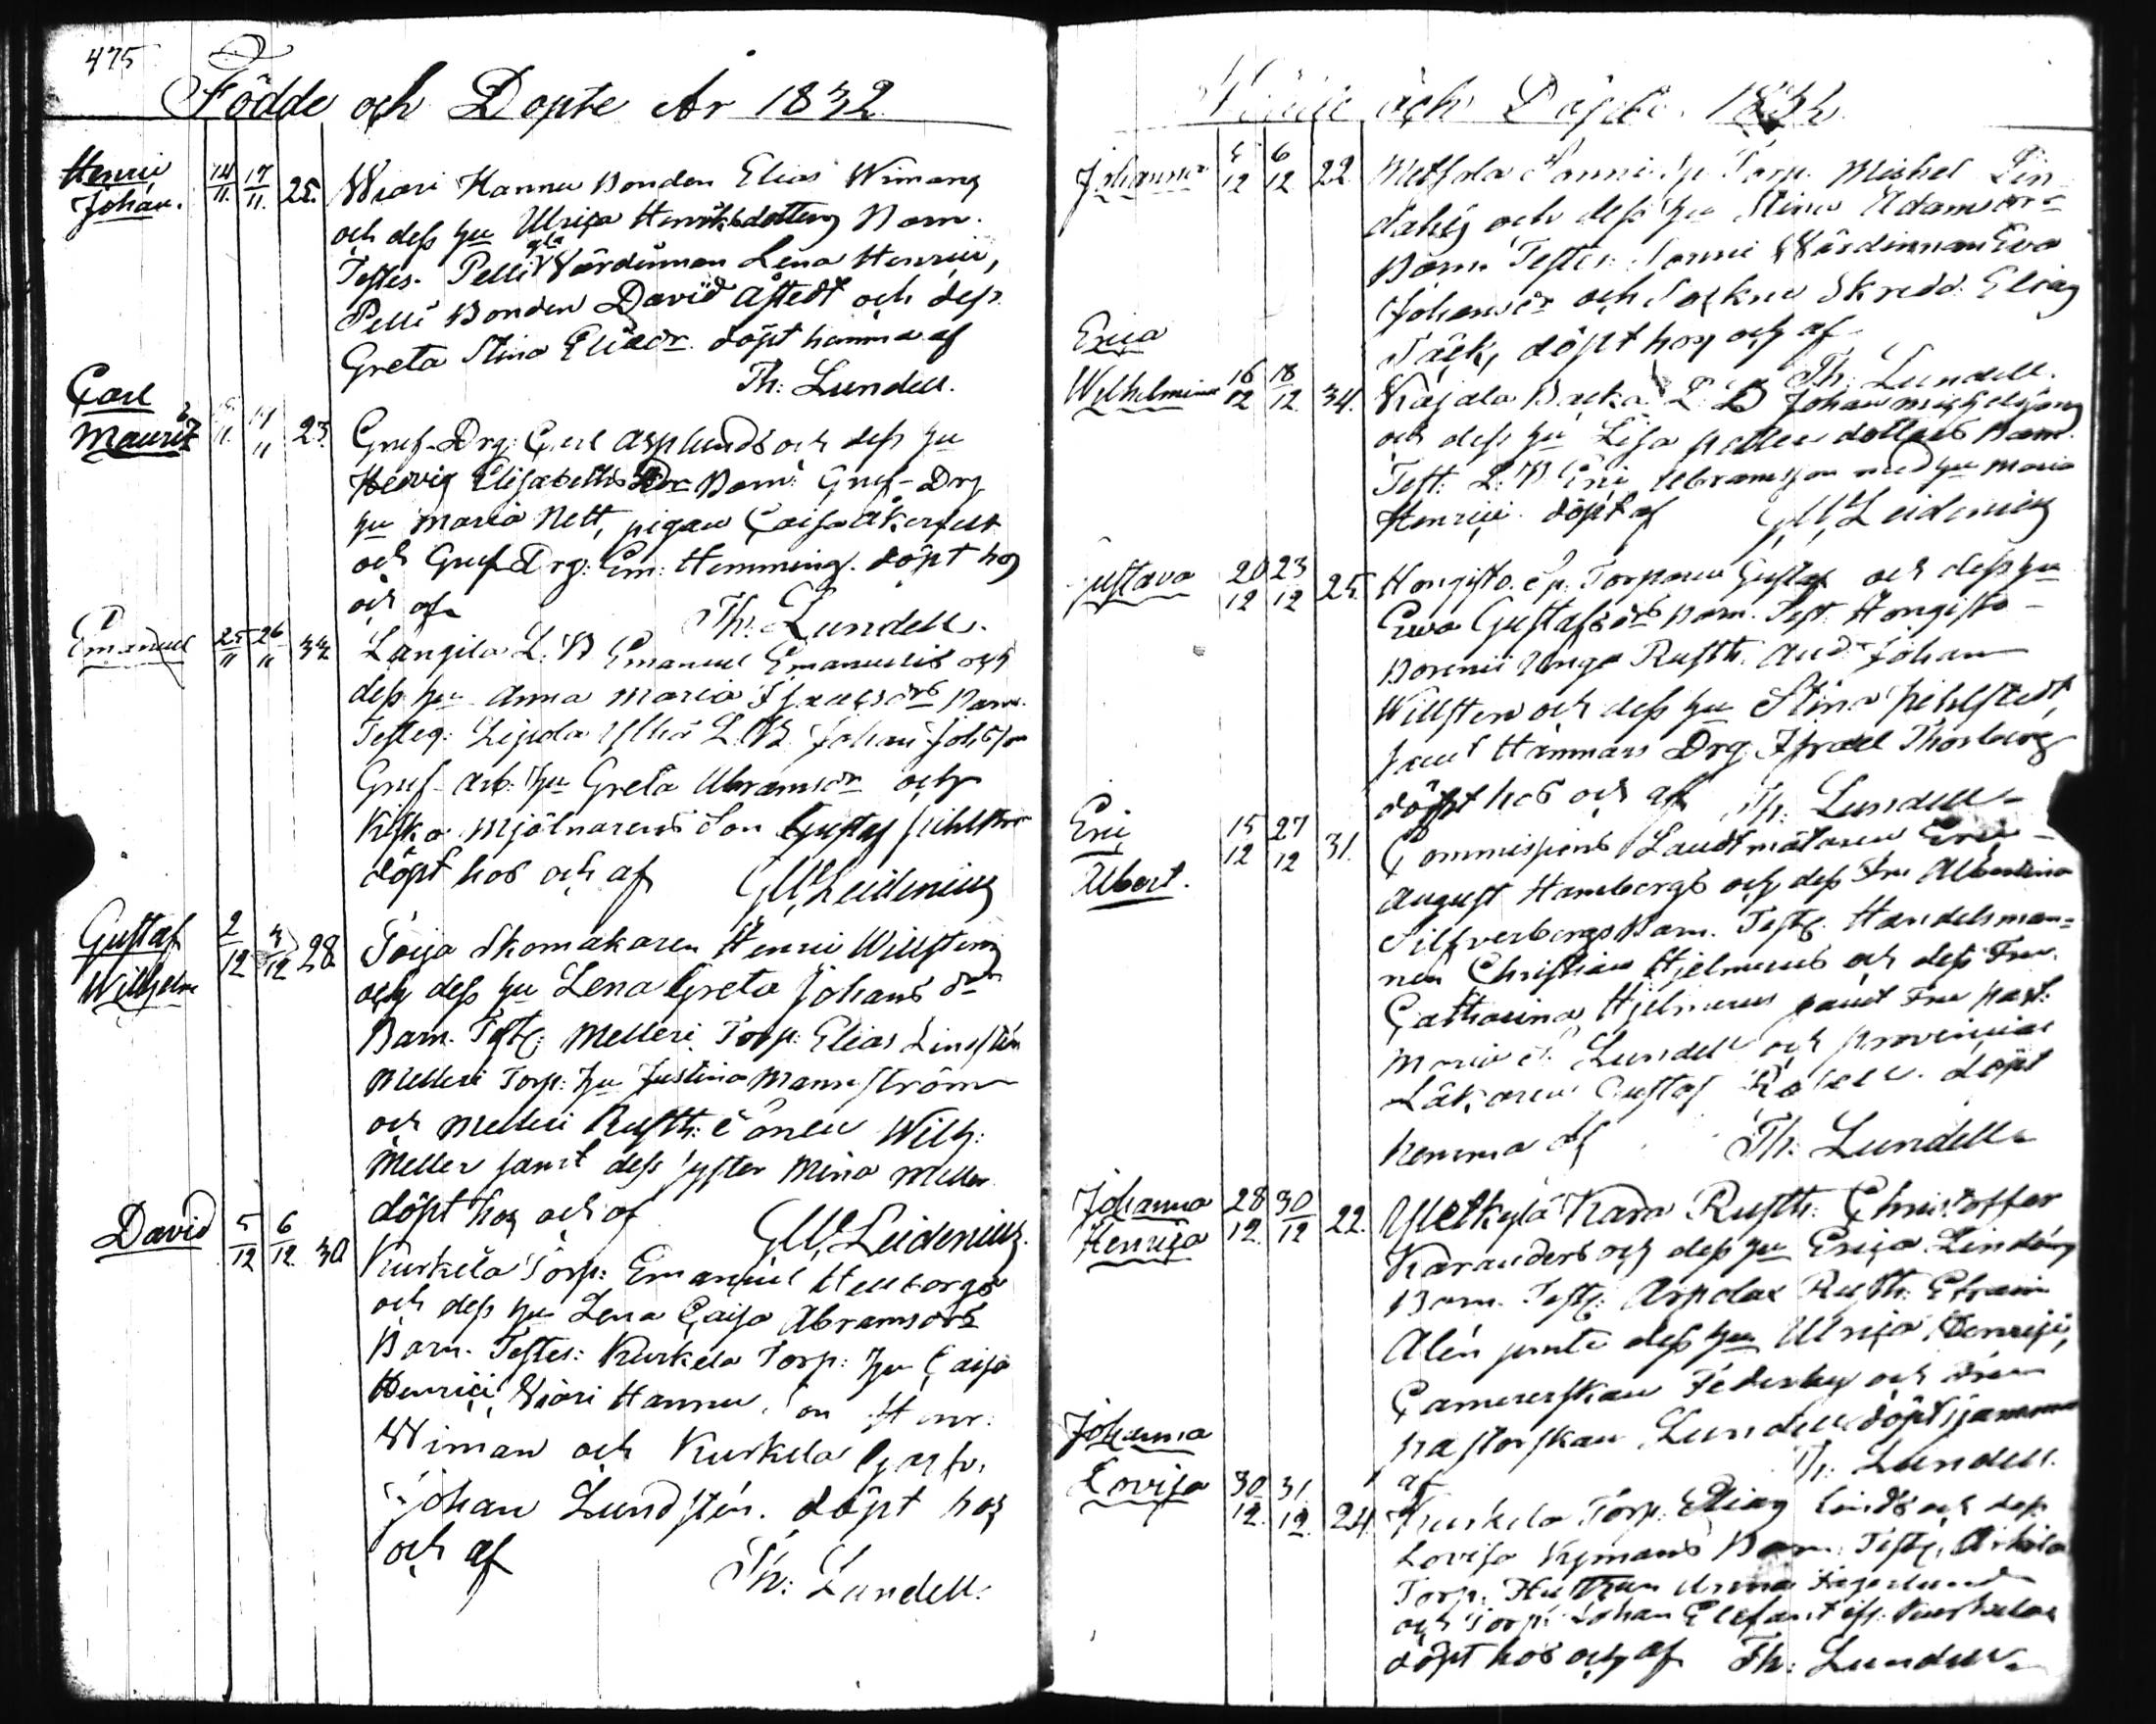 475
Födde och Döpte År 1832
Henric
Johan.
14/11. 17/11. 25.
Wiari Hannu Bonden Elias Wimans
och dess hu Ulrica Henriksdotters Barn.
Testes. Pelli gla Värdinnan Lena Henrici,
Pelli Bonden David Åstedt och dess
Greta Stina Eliædr. döpt hemma af
Th: Lundell.
Carl
Mauritz
11. 17/11 23.
Gruf-Drg: Carl Asplunds och dess hu
Hedvig Elisabeths Dr Barn: Gruf-Drg
hu Maria Nett, pigan Caisa Åkerfelt
och Gruf Drg: Em: Hemming. döpt hos
och af Th: Lundell.
Emanuel 25/11 26/11 33
Längila L: B Emanuel Emanuelis och
dess hu Anna Maria Isaacsdrs Barn.
Testes: L. B. Johan Johsson
Gruf-arb: hu Greta Abramsdr och
Kisko Mjölnarens Son Gustaf Pihlström
döpt hos och af G W Leidenius
Gustaf
Wilhelm
2/12 4/12 28
Toija Skomakaren Henric Willstens
och dess hu Lena Greta Johans dr
Barn. Test: Melleri Torp: Elias Lindsten
Melleri Torp: hu Justina Mannström
och Melleri Rusth: Sonen Wilh:
Meller samt dess syster Mina Meller
döpt hos och af G W Leidenius.
David 5/12 6/12. 30
Kurkela Torp: Emanuel Hellborgs
och dess hu Lena Caisa Abramsdrs
Barn. Testes: Kurkela Torp: hu Caisa
Henrici, Wiari Hannu, Son Henr:
Wiman och Kurkela
Johan Lundstén. döpt hos
och af
Th: Lundell.
Födde och Döpte 1832
Johanna 5/12 6/12 22
Sonni Torp. Michel Lin
dahls och dess hu Stina Adamsdr
Barn. Testes: Sonni Wärdinnan Eva
Johansdr och Sockne Skredd. Elias
döpt hos och af
Th: Lundell.
Erica
Wilhelmina 16/12 18/12. 34.
Kajala Backa L: B Johan Michelssons
och dess hu Lisa dotters Barn.
Test: L: B Eric Abramsson med hu Maria
Henrici. döpt af G W Leidenius
Gustava 20/12 23/12 25.
Hongisto Sp. Torparen Gustaf och dess hu
Eva Gustafsdrs Barn. Test: Hongisto
Rusth. Johan
Willsten och dess hu Stina Pihlstedt,
samt Hammars Drg Israel Thorberg
döpt hos och af Th: Lundell
Eric
Albert.
15/12 27/12 31.
Commissions Landtmätaren Eric
August Hambergs och dess Fru Albertina
Silfverbergs Barn. Test: Handelsman-
nen Christian Hjelmerus och dess Fru
Catharina Hjelmerus samt Fru Past:
Maria Lundell och Provincial
Läkaren Gustaf döpt
hemma af Th: Lundell
Johanna
Henrica
28/12. 30/12 22.
Ylikylä Kara Rusth: Christoffer
Karanders och dess hu Erica Lindéns
Barn. Test: Arpalax Rusth: Efraim
Alén jemte dess hu Ulrica Henrici,
Camererskan Federley och Fru
Pastorskan Lundell döpt hemma
af Th: Lundell.
Johanna
Lovisa 30/12. 31/12. 24.
Kurkela Torp: Elias Linds och dess
Lovisa Nymans Barn. Test:
Torp: Hustrun Anna Fagerlund
och Torp: Johan Elefant Kurkela
döpt hos och af Th: Lundell